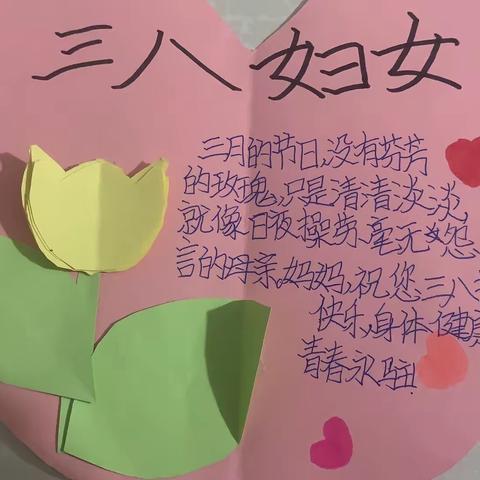 三八妇女
三月的节日,没有芬芳
的玫瑰,只是清清淡淡,
就像日夜操劳、毫无怨
言的母亲。妈妈,祝您三八
快乐,身体健
青春永驻!